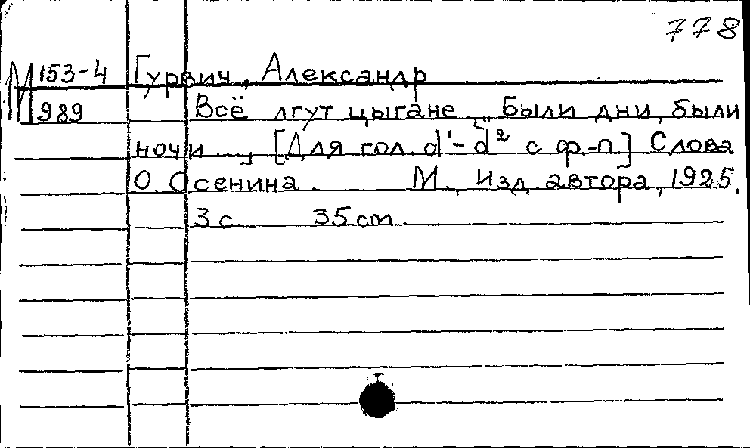 778
М 153-4 Гурвич, Александр
989 Всё лгут цыгане. Были дни, были
ночи..., [Для гол. d¹-d² с ф.-п.] Слова
О. Осенина. М., изд. автора, 1925.
3 с. 35 cm.